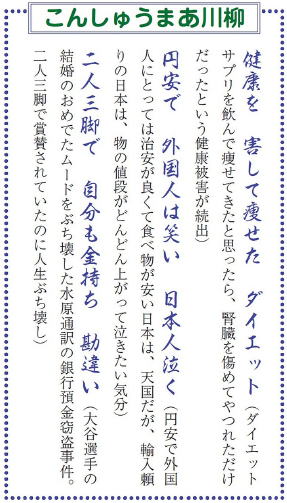 こんしゅうまあ川柳
健康を　害して痩せた　ダイエット（ダイエット
サプリを飲んで痩せてきたと思ったら、腎臓を傷めてやつれただけ
だったという健康被害が続出）
円安で　外国人は笑い　日本人泣く（円安で外国
人にとっては治安が良くて食べ物が安い日本は、天国だが、輸入頼
りの日本は、物の値段がどんどん上がって泣きたい気分）
二人三脚で　自分も金持ち　勘違い（大谷選手の
結婚のおめでたムードをぶち壊した水原通訳の銀行預金窃盗事件。
二人三脚で賞賛されていたのに人生ぶち壊し）